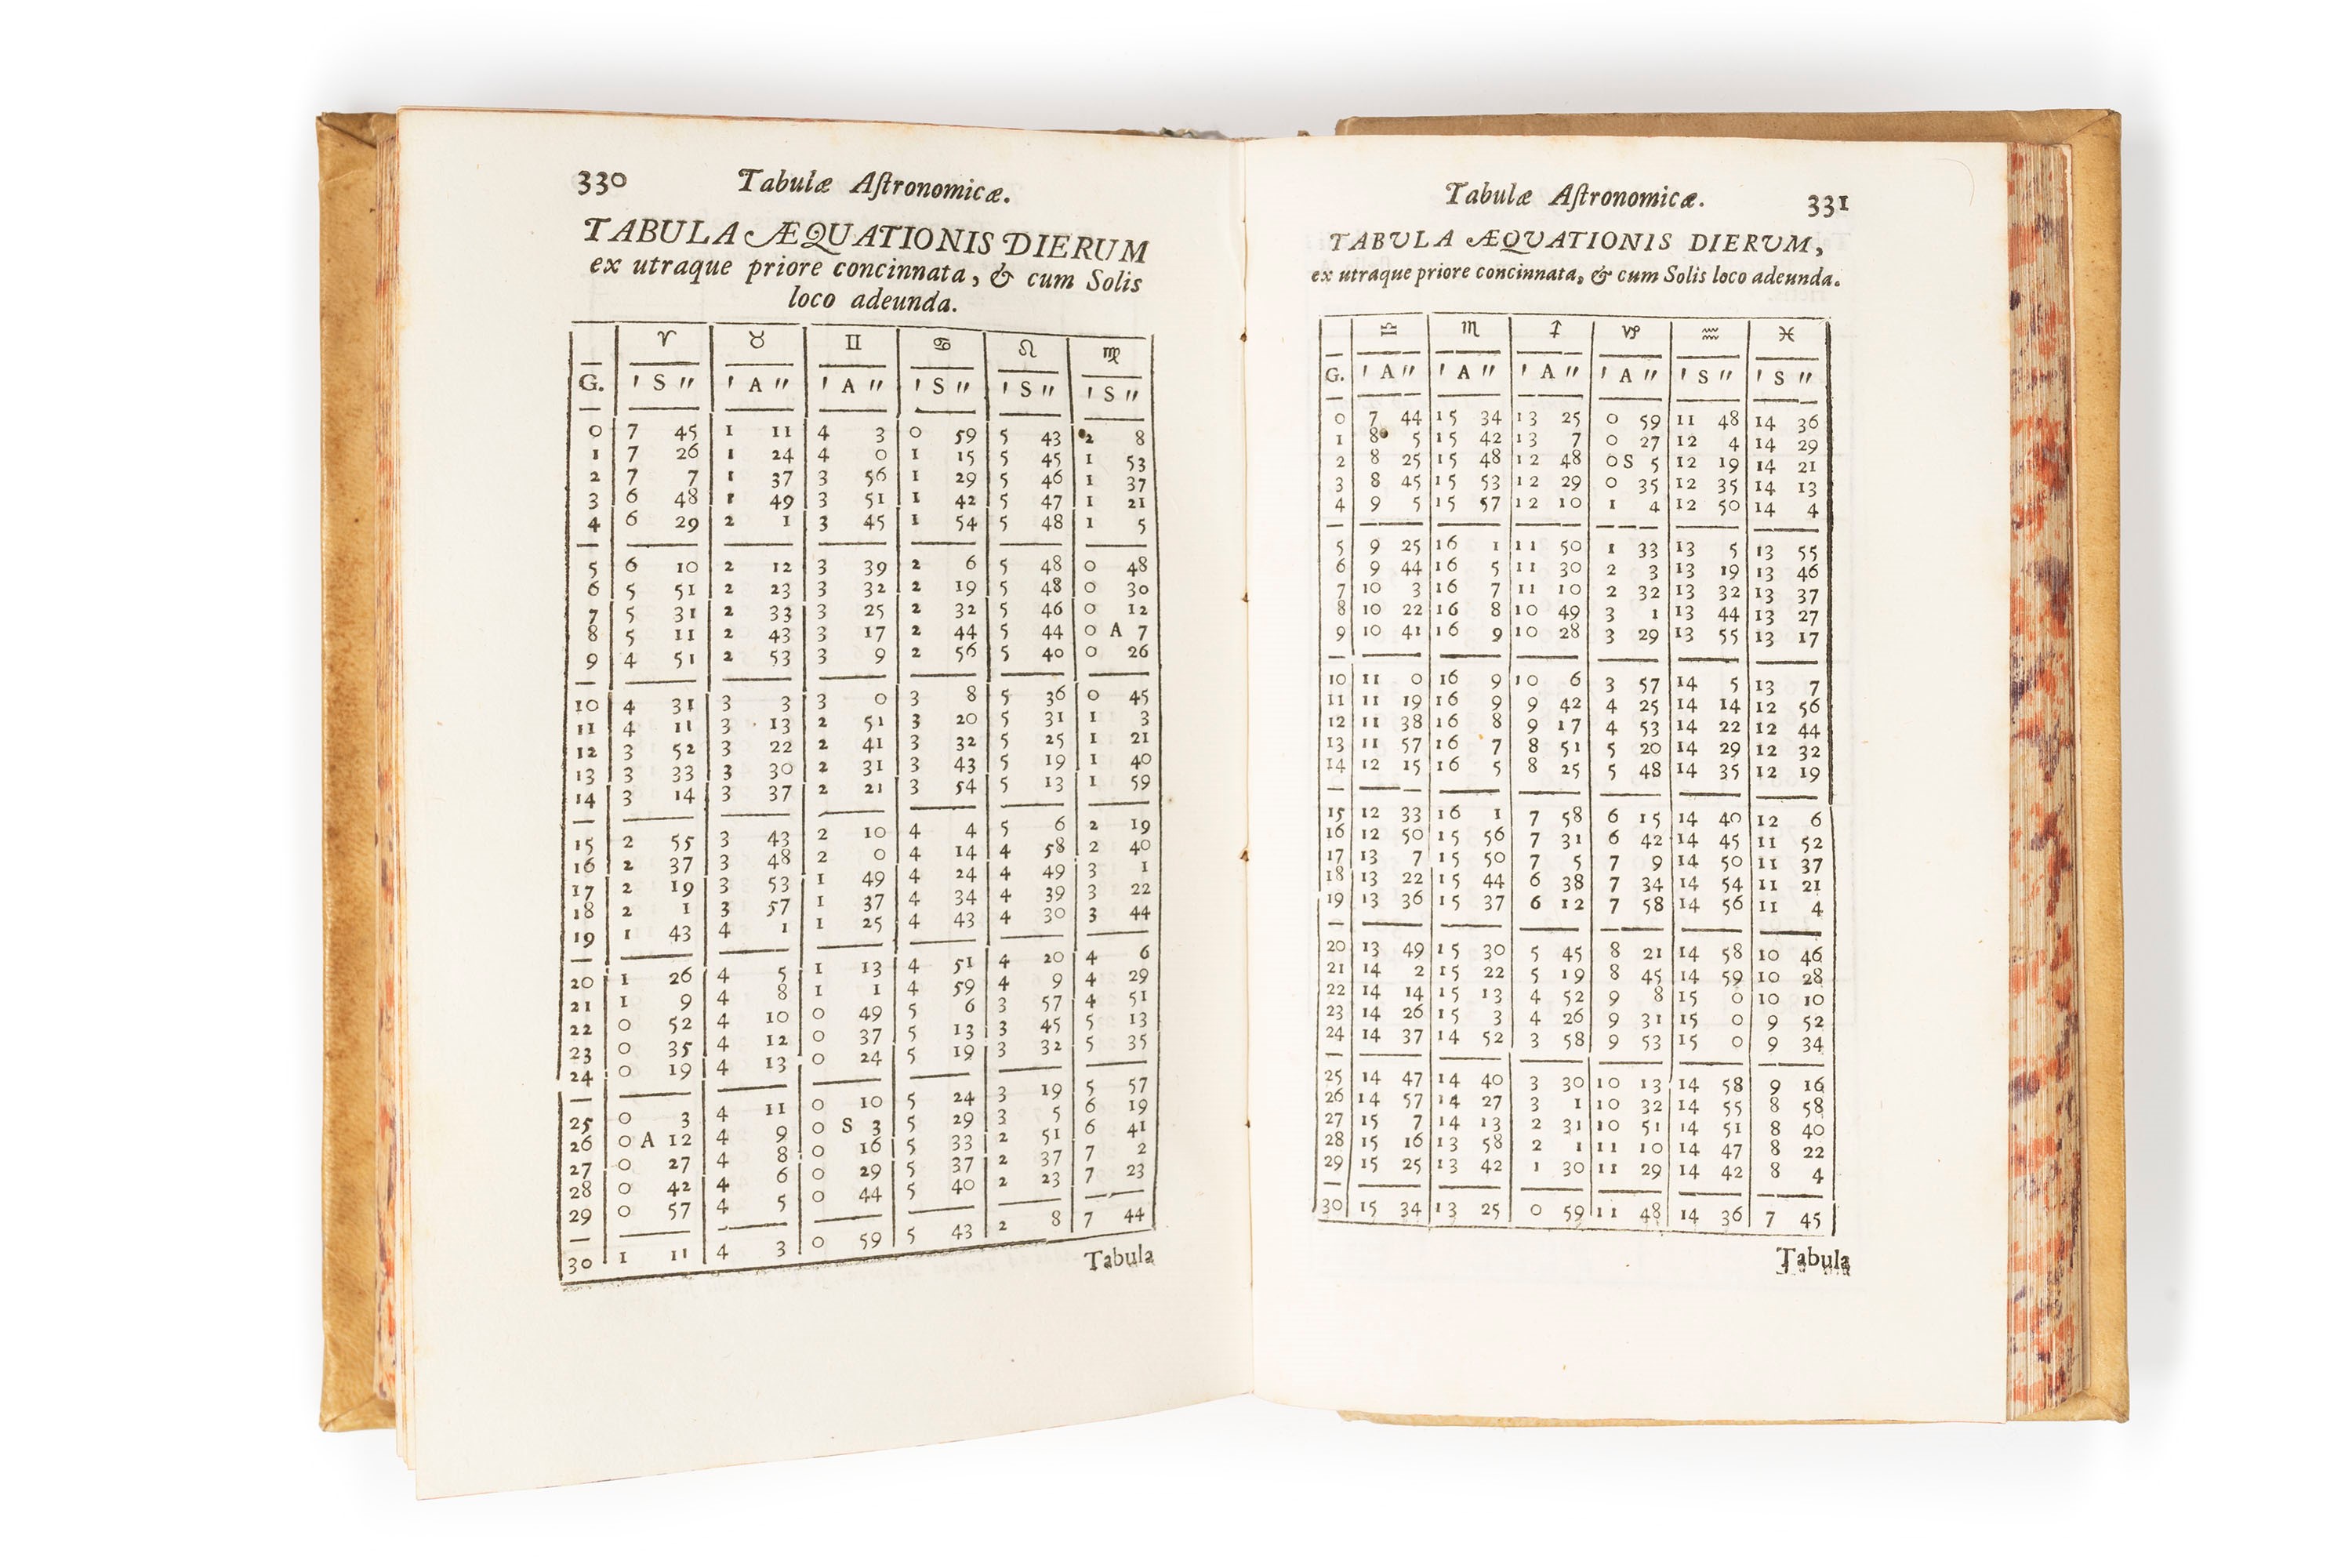 330 Tabulæ Aſtronomicæ.
TABULA ÆQUATIONIS DIERUM
ex utraque priore concinnata, & cum Solis
loco adeunda.
♈ ♉ ♊ ♋ ♌ ♍
G. ′ S ″ ′ A ″ ′ A ″ ′ S ″ ′ S ″ ′ S ″
0 7 45 1 11 4 3 0 59 5 43 2 8
1 7 26 1 24 4 0 1 15 5 45 1 53
2 7 7 1 37 3 56 1 29 5 46 1 37
3 6 48 1 49 3 51 1 42 5 47 1 21
4 6 29 2 1 3 45 1 54 5 48 1 5
5 6 10 2 12 3 39 2 6 5 48 0 48
6 5 51 2 23 3 32 2 19 5 48 0 30
7 5 31 2 33 3 25 2 32 5 46 0 12
8 5 11 2 43 3 17 2 44 5 44 0 A 7
9 4 51 2 53 3 9 2 56 5 40 0 26
10 4 31 3 3 3 0 3 8 5 36 0 45
11 4 11 3 13 2 51 3 20 5 31 1 3
12 3 52 3 22 2 41 3 32 5 25 1 21
13 3 33 3 30 2 31 3 43 5 19 1 40
14 3 14 3 37 2 21 3 54 5 13 1 59
15 2 55 3 43 2 10 4 4 5 6 2 19
16 2 37 3 48 2 0 4 14 4 58 2 40
17 2 19 3 53 1 49 4 24 4 49 3 1
18 2 1 3 57 1 37 4 34 4 39 3 22
19 1 43 4 1 1 25 4 43 4 30 3 44
20 1 26 4 5 1 13 4 51 4 20 4 6
21 1 9 4 8 1 1 4 59 4 9 4 29
22 0 52 4 10 0 49 5 6 3 57 4 51
23 0 35 4 12 0 37 5 13 3 45 5 13
24 0 19 4 13 0 24 5 19 3 32 5 35
25 0 3 4 11 0 10 5 24 3 19 5 57
26 0 A 12 4 9 0 S 3 5 29 3 5 6 19
27 0 27 4 8 0 16 5 33 2 51 6 41
28 0 42 4 6 0 29 5 37 2 37 7 2
29 0 57 4 5 0 44 5 40 2 23 7 23
30 1 11 4 3 0 59 5 43 2 8 7 44
Tabula
Tabulæ Aſtronomicæ. 331
TABVLA ÆQVATIONIS DIERVM,
ex utraque priore concinnata, & cum Solis loco adeunda.
♎ ♏ ♐ ♑ ♒ ♓
G. ′ A ″ ′ A ″ ′ A ″ ′ A ″ ′ S ″ ′ S ″
0 7 44 15 34 13 25 0 59 11 48 14 36
1 8 5 15 42 13 7 0 27 12 4 14 29
2 8 25 15 48 12 48 0 S 5 12 19 14 21
3 8 45 15 53 12 29 0 35 12 35 14 13
4 9 5 15 57 12 10 1 4 12 50 14 4
5 9 25 16 1 11 50 1 33 13 5 13 55
6 9 44 16 5 11 30 2 3 13 19 13 46
7 10 3 16 7 11 10 2 32 13 32 13 37
8 10 22 16 8 10 49 3 1 13 44 13 27
9 10 41 16 9 10 28 3 29 13 55 13 17
10 11 0 16 9 10 6 3 57 14 5 13 7
11 11 19 16 9 9 42 4 25 14 14 12 56
12 11 38 16 8 9 17 4 53 14 22 12 44
13 11 57 16 7 8 51 5 20 14 29 12 32
14 12 15 16 5 8 25 5 48 14 35 12 19
15 12 33 16 1 7 58 6 15 14 40 12 6
16 12 50 15 56 7 31 6 42 14 45 11 52
17 13 7 15 50 7 5 7 9 14 50 11 37
18 13 22 15 44 6 38 7 34 14 54 11 21
19 13 36 15 37 6 12 7 58 14 56 11 4
20 13 49 15 30 5 45 8 21 14 58 10 46
21 14 2 15 22 5 19 8 45 14 59 10 28
22 14 14 15 13 4 52 9 8 15 0 10 10
23 14 26 15 3 4 26 9 31 15 0 9 52
24 14 37 14 52 3 58 9 53 15 0 9 34
25 14 47 14 40 3 30 10 13 14 58 9 16
26 14 57 14 27 3 1 10 32 14 55 8 58
27 15 7 14 13 2 31 10 51 14 51 8 40
28 15 16 13 58 2 1 11 10 14 47 8 22
29 15 25 13 42 1 30 11 29 14 42 8 4
30 15 34 13 25 0 59 11 48 14 36 7 45
Tabula